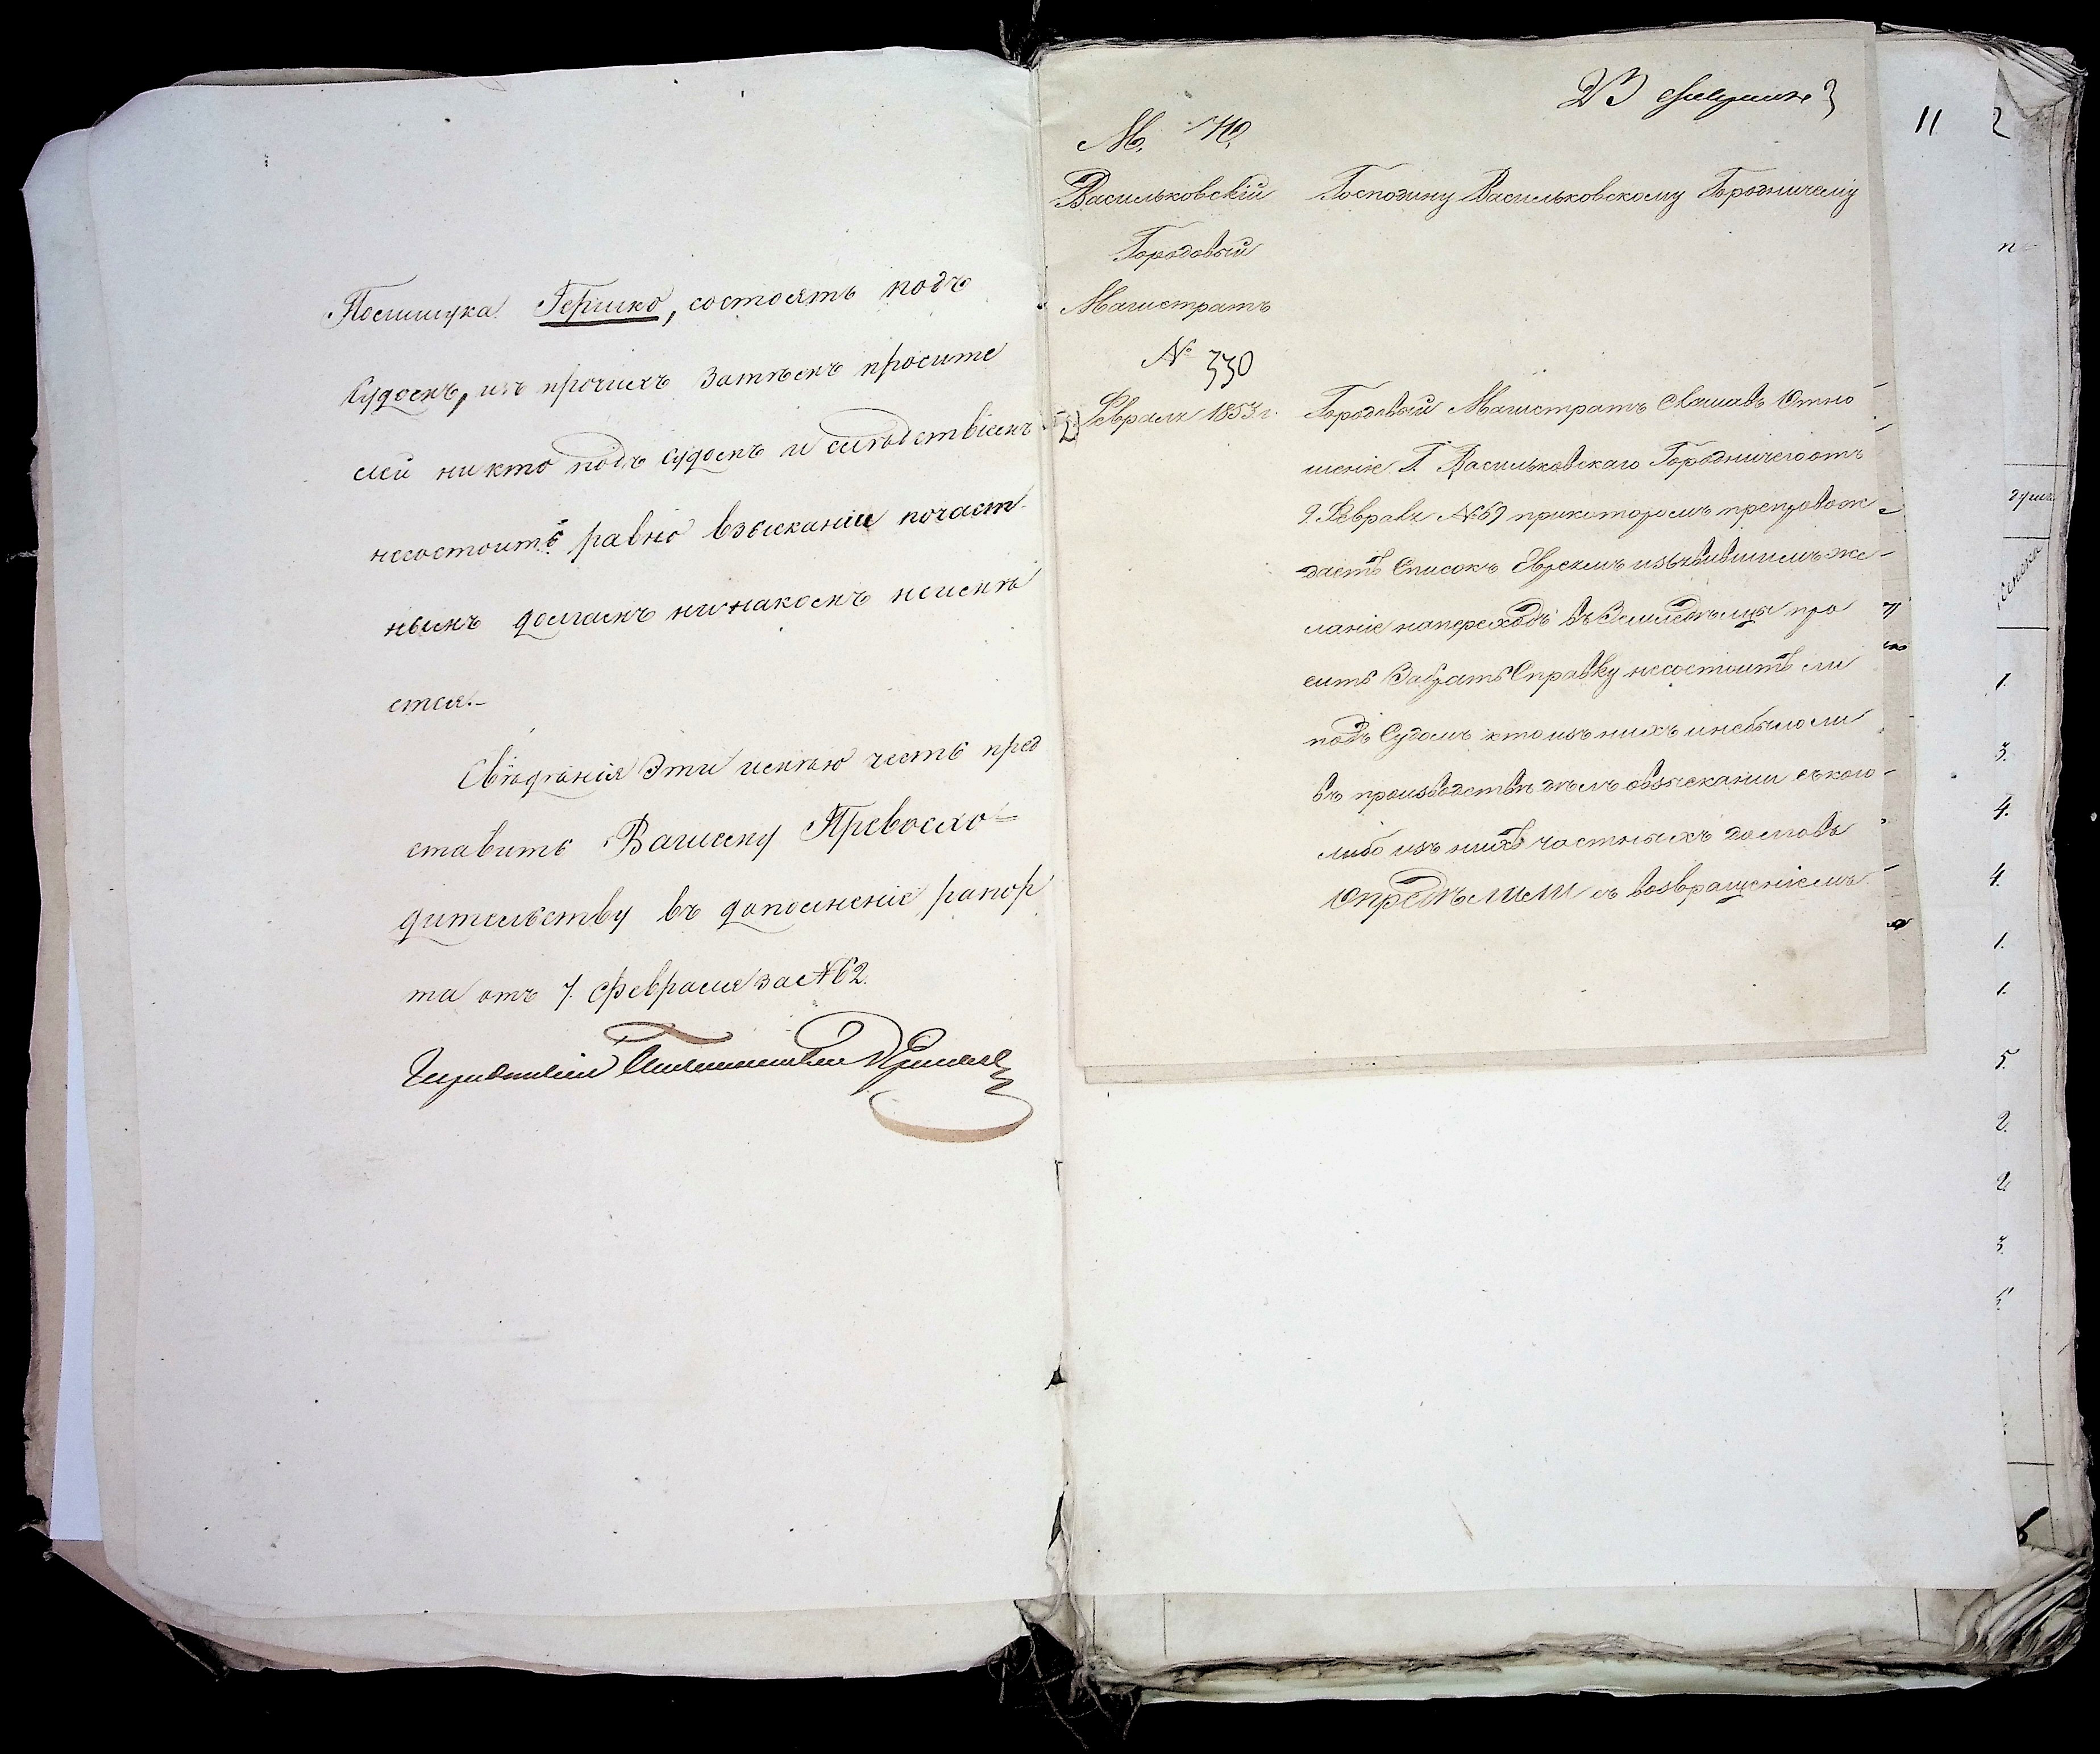 Полищука Гершко, состоятъ подъ
Судомъ, изъ прочихъ затѣмъ просите
лей никто подъ судомъ и слѣдствіемъ
несостоитъ равно взысканіи почаст
нымъ долгамъ никакомъ неимѣ
ется.-
Свѣдѣнія Эти имѣю честь пред
ставить Вашему Превосхо=
дительству въ дополненіе рапор
та отъ 7. февраля за №62.
Городничій
23 февраля
М. 
Васильковскій
Городовый
Магистратъ
№ 330
Февраля 1853 г.
Господину Васильковскому Городничему
Городовый Магистратъ Слушавъ Отно
шеніе Г. Васильковскаго Городничего отъ
9 Февраля №69 прикоторомъ препровож
даетъ Списокъ Евреямъ изъявившимъ же-
ланіе напереходъ въ Земледѣльцы про
ситъ Забрать Справку несостоитъ ли
подъ Судомъ кто изъ нихъ и небыло ли
въ производствѣ дѣлъ овзысканіи съкого-
либо изъ нихъ частныхъ долговъ
Опредѣлили съ возвращеніемъ
11
2
душъ
1.
3.
4.
4.
1.
1.
5.
2.
2.
3.